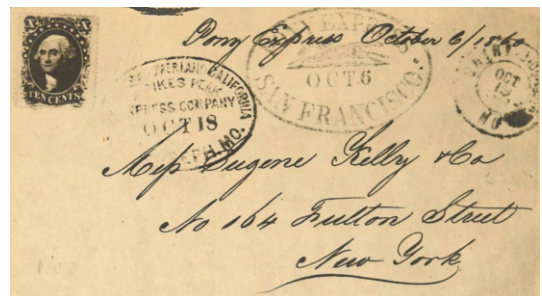 Pony Express October 6/1860
TEN CENTS
CALIFORNIA
PIKES PEAK
EXPRESS COMPANY
OCT 18
MO.
EXPRE
OCT.6
SAN FRANCISCO.
OCT
MO
Mess Eugene Kelly & Co
No 164 Fulton Street
New York